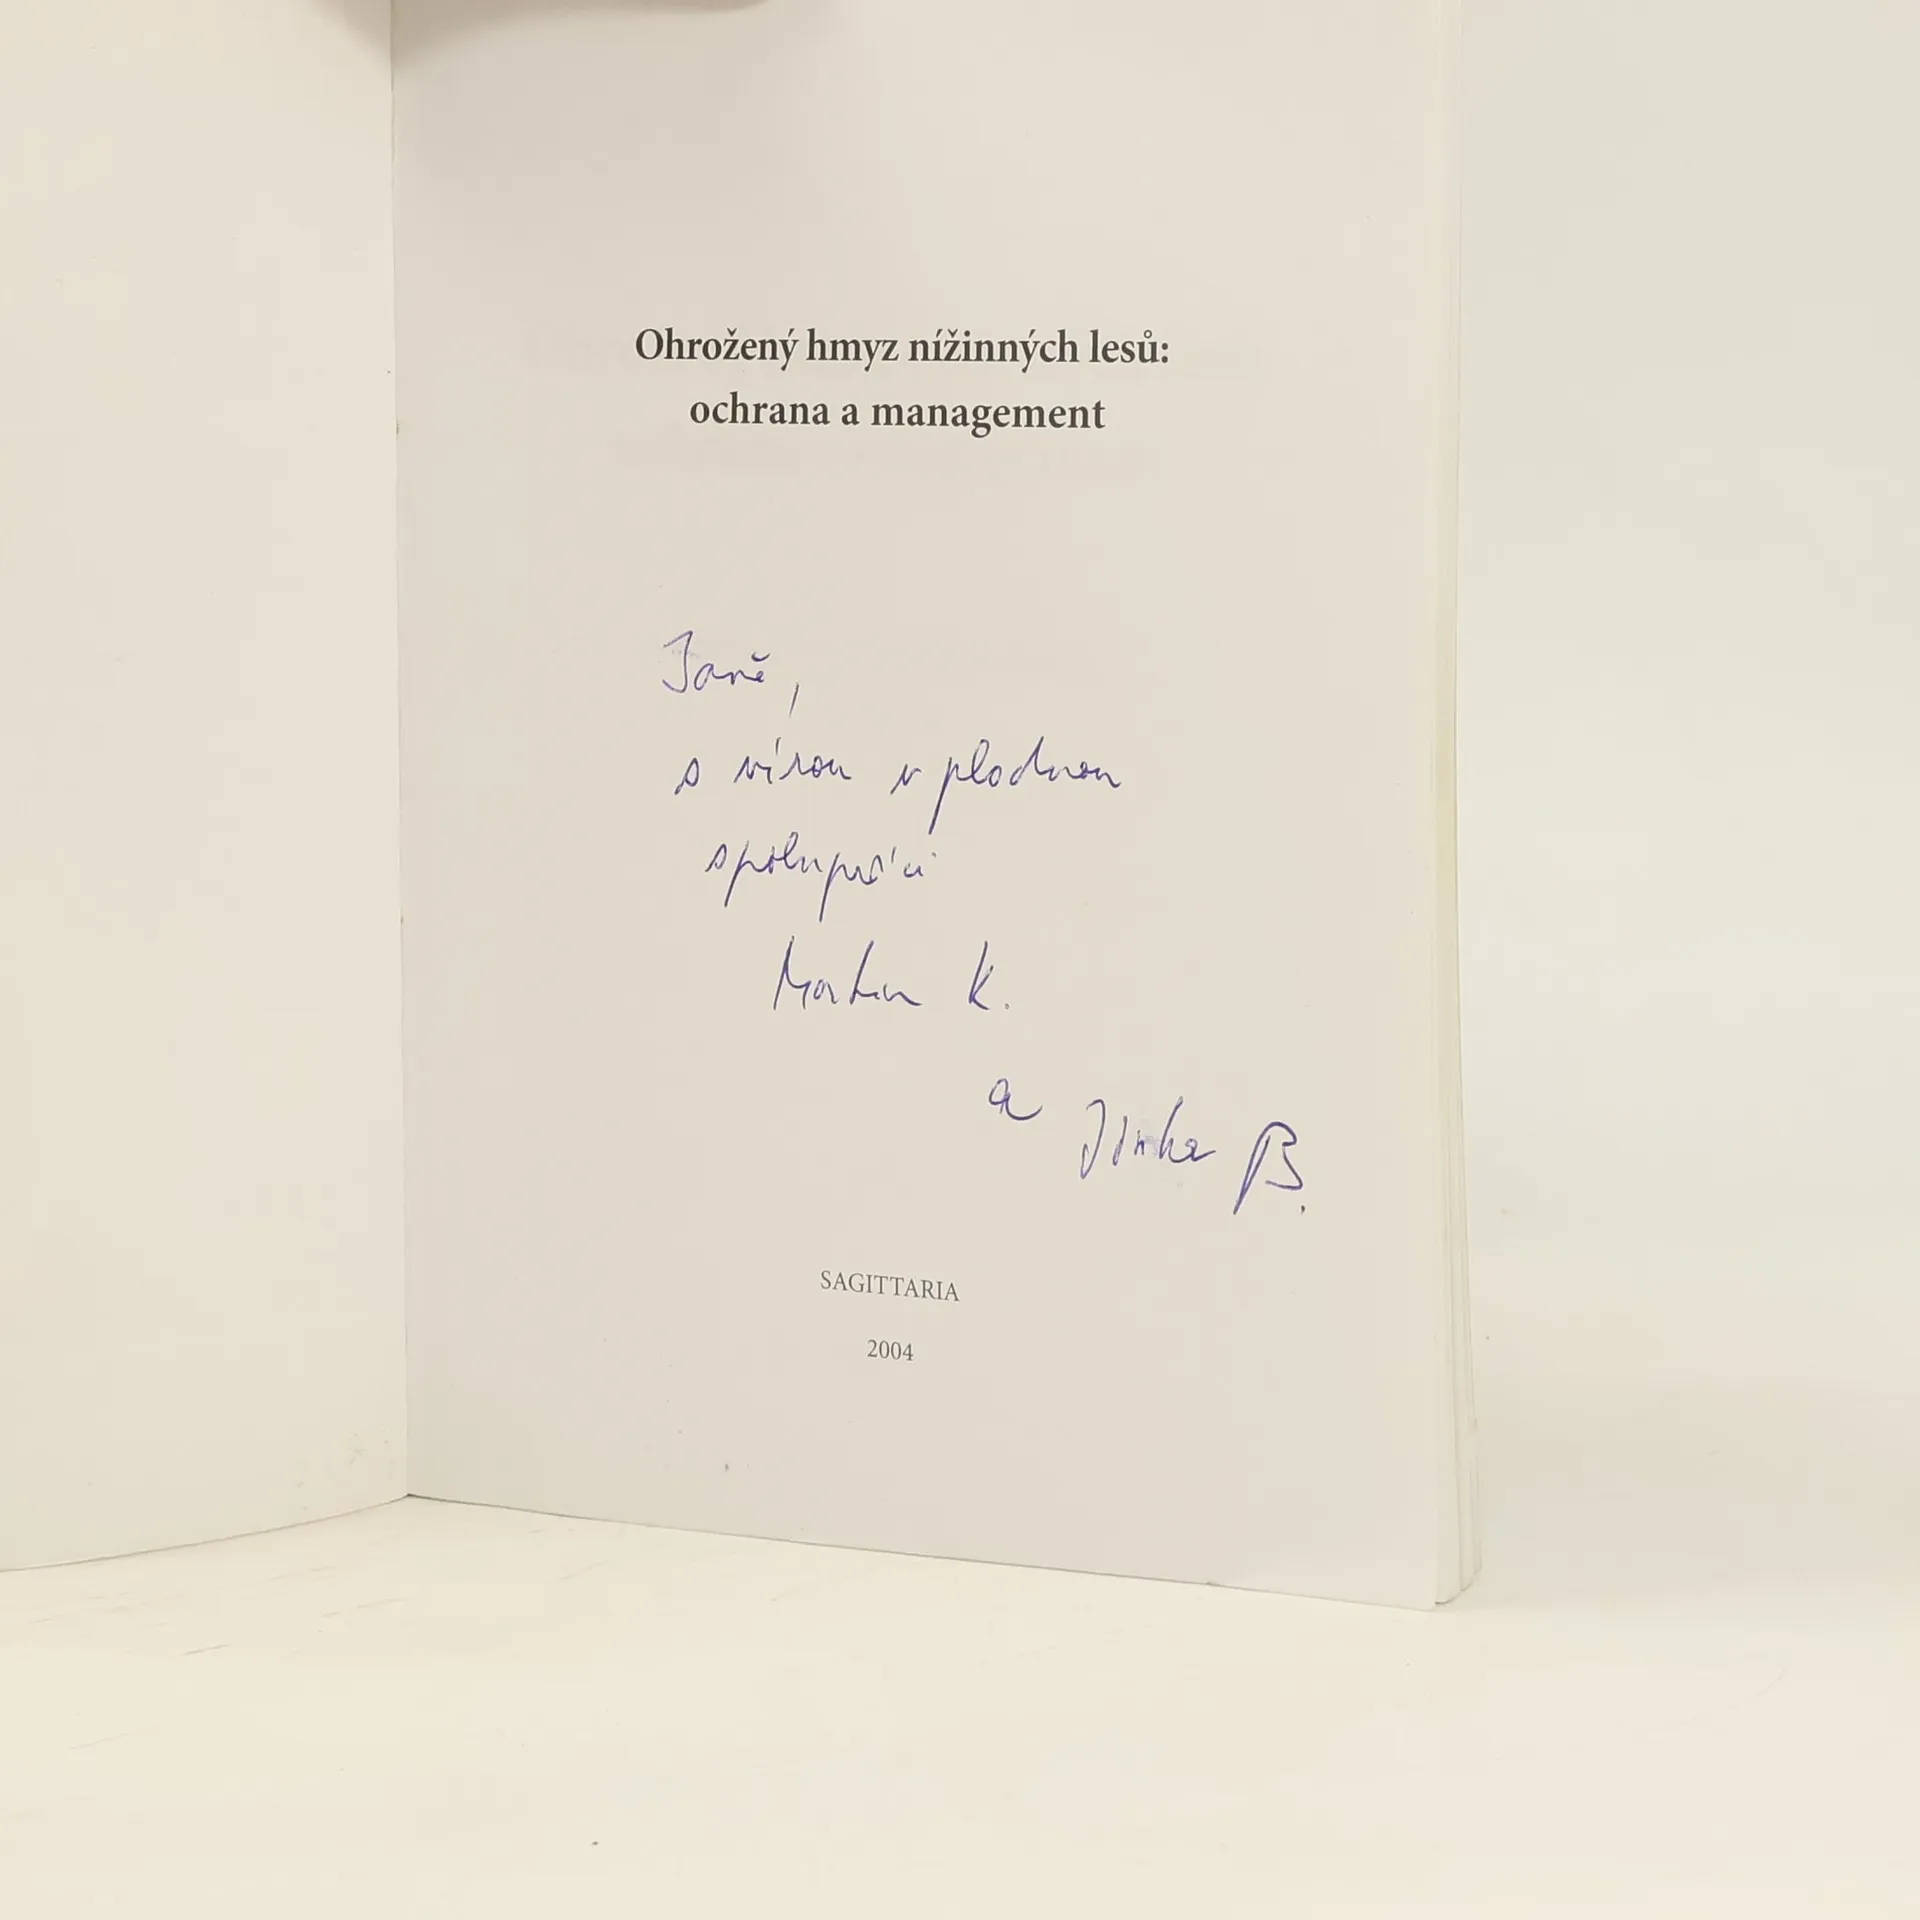 Ohrožený hmyz nížinných lesů:
ochrana a management
Janě,
s vírou v plodnou
spolupráci
Martin K.
a Jinka B.
SAGITTARIA
2004